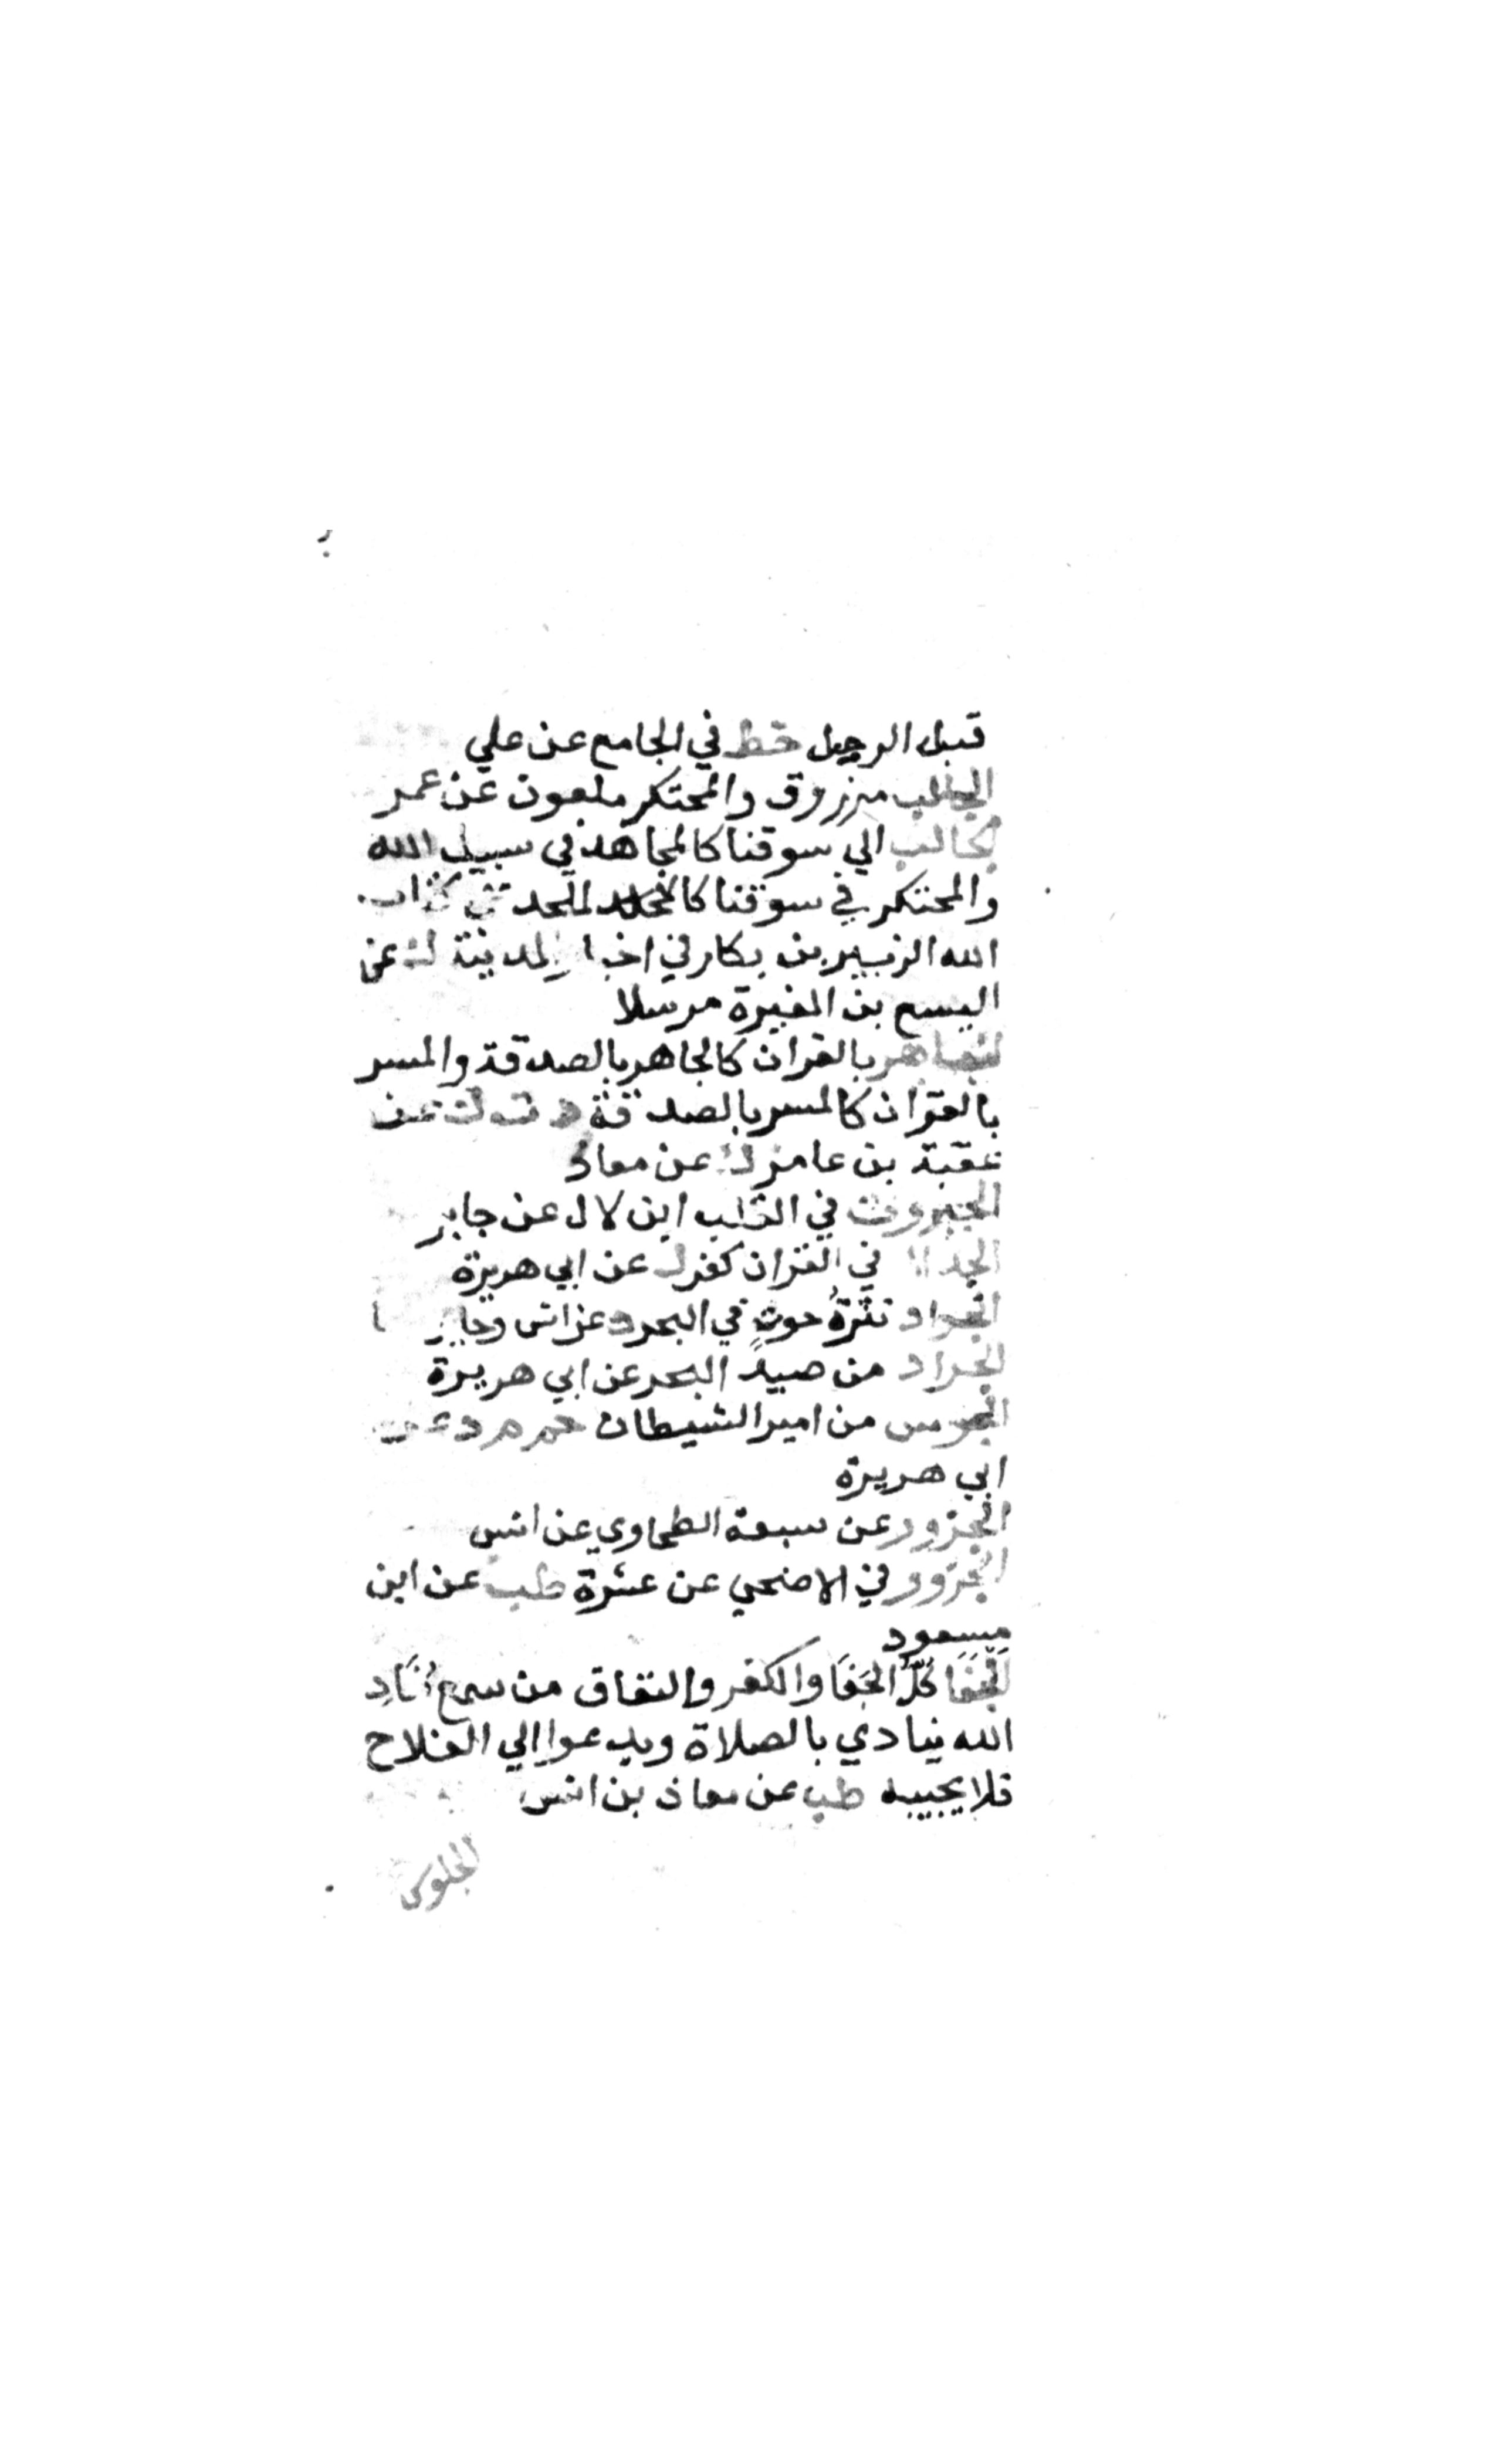 قبل الرحيل خط في الجامع عن علي
الجالب مرزوق والمحتكر ملعون عن عمر
الجالب الي سوقنا كالمجاهد في سبيل الله
والمحتكر في سوقنا كالملحد في كتاب
الله الزبير بن بكار في اخبار المدينة ك عن
اليسع بن المغيرة مرسلا
الجاهر بالقران كالجاهر بالصدقة والمسر
بالقران كالمسر بالصدقة د ت ن عن
عقبة بن عامر ك عن معاذ
الجبروت في القلب ابن لال عن جابر
الجدال في القران كفر ك عن ابي هريرة
الجراد نثرةُ حوتٍ في البحر د عن انس وجابر
الجراد من صيد البحر عن ابي هريرة
الجرس من امير الشيطان حم م د عن
ابي هريرة
الجزور عن سبعة الطحاوي عن انس
الجزور في الاضحي عن عشرة طب عن ابن
مسعود
الجَفَا كُلُّ الجَفَا والكفر والنفاق من سمع مُنَادِ
الله ينادي بالصلاة ويدعوا الي الفلاح
فلا يجيبه طب عن معاذ بن انس